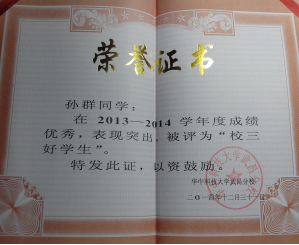 荣誉证书
孙群同学：
在 2013—2014 学年度成绩
优秀，表现突出，被评为“校三
好学生”。
特发此证，以资鼓励。
华中科技大学武昌分校
二〇一四年十二月三十一日